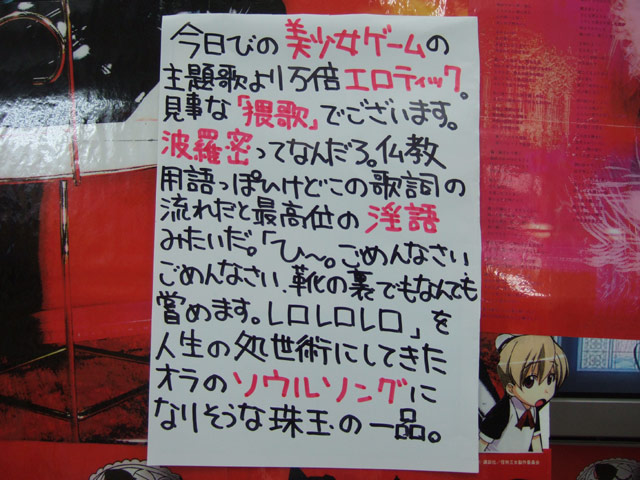 今日びの美少女ゲームの
主題歌より万倍エロティック。
見事な「猥歌」でございます。
波羅密ってなんだろ。仏教
用語っぽいけどこの歌詞の
流れだと最高位の淫語
みたいだ。「ひ〜。ごめんなさい
ごめんなさい、靴の裏でもなんでも
嘗めます。レロレロレロ」を
人生の処世術にしてきた
オラのソウルソングに
なりそうな珠玉の一品。